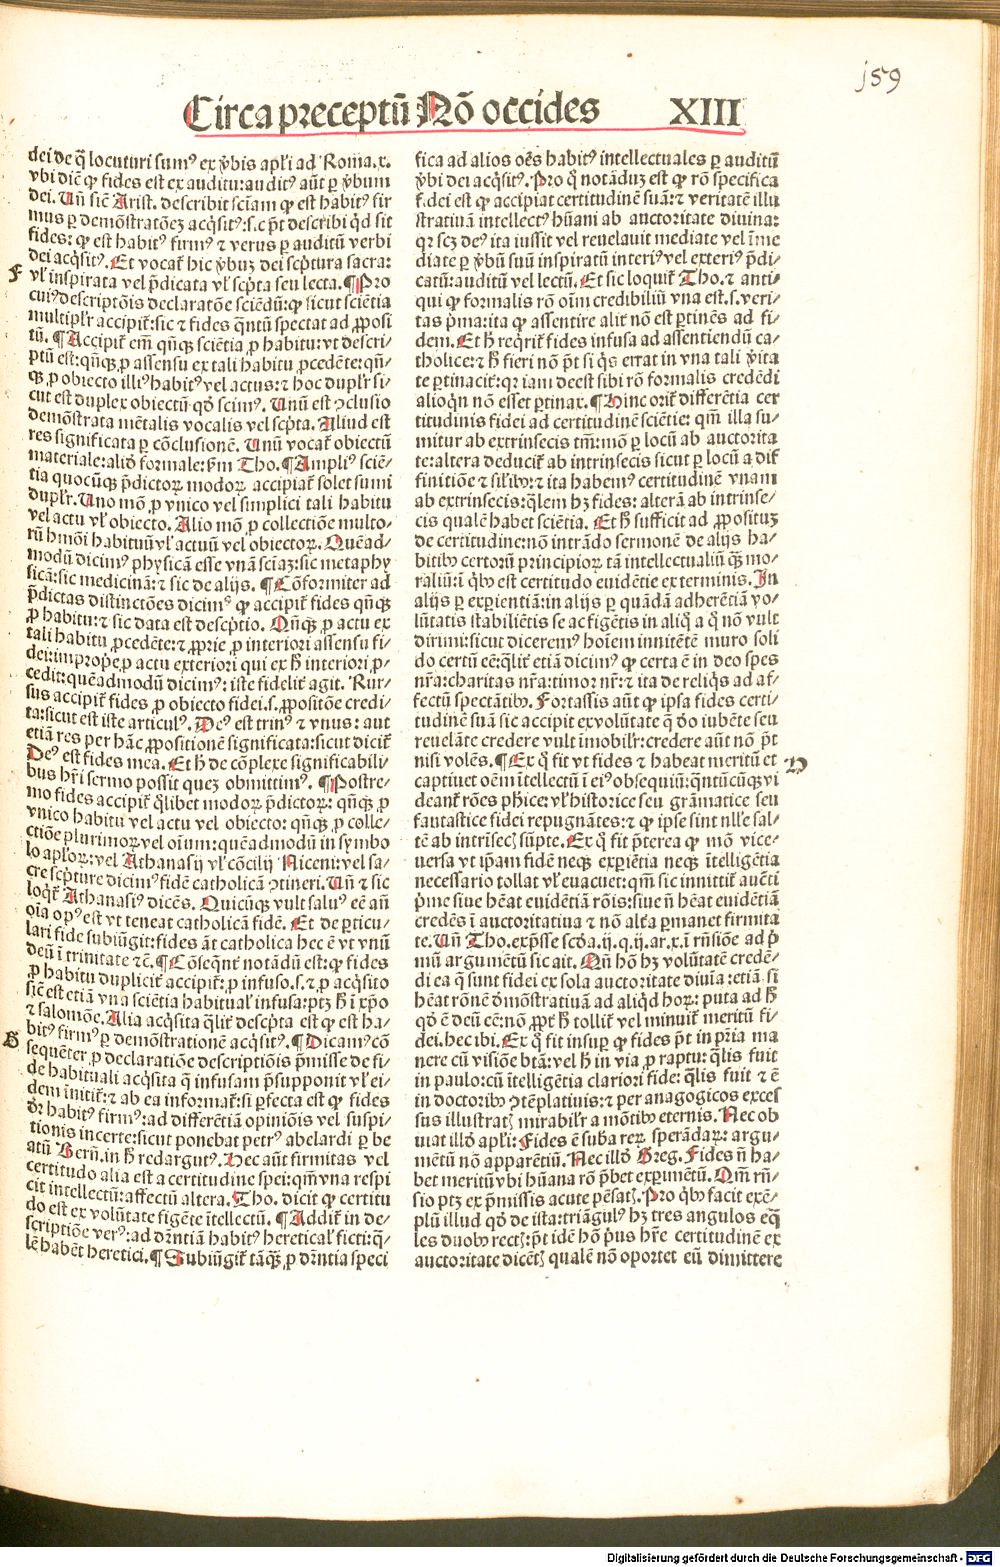 j59
Circa preceptū Nō occides XIII
dei de q̄ locuturi sumꝰ ex v̄bis apl̄i ad Roma. x.
vbi dic̄ ꝙ fides est ex auditu: auditꝰ aūt ꝑ v̄bum
dei. Un̄ sic̄ Arist. describit sciam ꝙ est habitꝰ fir
mus ꝑ demōstratōeꝫ acq̄sitꝰ: s.c p̄t describi qd̓ sit
fides: ꝙ est habitꝰ firmꝰ ⁊ verus ꝑ auditū verbi
dei acq̄sitꝰ. Et vocat̉ hic v̄buꝫ dei scp̄tura sacra:
F
vl̓ inspirata vel p̄dicata vl̓ scp̄ta seu lecta. ¶ Pro
cuiꝰ descriptōis declaratōe sciēdū: ꝙ sicut sciētia
multipl̓r accipit̉: sic ⁊ fides q̄ntū spectat ad ꝓposi
tū. ¶ Accipit̉ em̄ qn̄qꝫ sciētia ꝓ habitu: vt descri-
ptū est: qn̄qꝫ ꝓ assensu ex tali habitu ꝓcedēte: qn̄-
qꝫ ꝓ obiecto illiꝰ habitꝰ vel actus: ⁊ hoc dupl̓r si-
cut est duplex obiectū qd̓ scimꝰ. Unū est ꝯclusio
demōstrata mētalis vocalis vel scp̄ta. Aliud est
res significata ꝑ cōclusionē. Unū vocat̉ obiectū
materiale: aliō formale: ẜm Tho. ¶ Ampliꝰ sciē-
tia quocūqꝫ p̄dictoꝝ modoꝝ accipiat̉ solet sumi
dupl̓r. Uno mō ꝓ vnico vel simplici tali habitu
vel actu vl̓ obiecto. Alio mō ꝓ collectiōe multo-
rū hmōi habituū vl̓ actuū vel obiectoꝝ. Quēad-
modū dicimꝰ physicā esse vnā sciaꝫ: sic metaphy
sicā: sic medicinā: ⁊ sic de alijs. ¶ Cōformiter ad
p̄dictas distinctōes dicimꝰ ꝙ accipit̉ fides qn̄qꝫ
ꝓ habitu: ⁊ sic data est descp̄tio. Qn̄qꝫ ꝓ actu ex
tali habitu ꝓcedēte: ⁊ ꝓprie ꝓ interiori assensu fi-
dei: imprope ꝓ actu exteriori qui ex h̄ interiori p-
cedit: quēadmodū dicimꝰ: iste fidelit̉ agit. Rur-
sus accipit̉ fides ꝓ obiecto fidei. s. ꝓpositōe credi-
ta: sicut est iste articulꝰ. Deꝰ est trinꝰ ⁊ vnus: aut
etiā res per hāc ꝓpositionē significata: sicut dicit̉
Deꝰ est fides mea. Et h̄ de cōplexe significabili-
bus hr̄i sermo possit queꝫ obmittimꝰ. ¶ Postre-
mo fides accipit̉ q̄libet modoꝝ p̄dictoꝝ: qn̄qꝫ ꝓ
vnico habitu vel actu vel obiecto: qn̄qꝫ ꝓ colle-
ctiōe plurimoꝝ vel oīum: quēadmodū in symbo
lo apl̓oꝝ: vel Athanasij vl̓ cōcilij Niceni: vel sa-
cre scp̄ture dicimꝰ fidē catholicā ꝯtineri. Un̄ ⁊ sic
loqt̉ Athanasiꝰ dicēs. Quicūqꝫ vult saluꝰ eē añ
oīa opꝰ est vt teneat catholicā fidē. Et de ꝑticu-
lari fide subiūgit: fides āt catholica hec ē vt vnū
deū ī trinitate ⁊ē. ¶ Cōseqn̄t̉ notādū est: ꝙ fides
ꝓ habitu duplicit̉ accipit̉: ꝓ infuso. s. ⁊ ꝓ acq̄sito
sic̄ est etiā vna sciētia habitual̓ infusa: ptꝫ h̄ ī xp̄o
⁊ salomōe. Alia acq̄sita q̄lit̉ descp̄ta est ꝙ est ha-
G
bitꝰ firmꝰ ꝑ demōstrationē acq̄sitꝰ. ¶ Dicamꝰ cō
sequēter ꝓ declaratiōe descriptiōis p̄misse de fi-
de habituali acq̄sita q̄ infusam p̄supponit vl̓ ei-
dem īnitit̉: ⁊ ab ea informat̉: si ꝑfecta est ꝙ fides
dr̄ habitꝰ firmꝰ: ad differētiā opiniōis vel suspi-
tionis incerte: sicut ponebat petrꝰ abelardi ꝑ be
atū Bern. in h̄ redargutꝰ. Hec aūt firmitas vel
certitudo alia est a certitudine spei: qm̄ vna respi
cit intellectū: affectū altera. Tho. dicit ꝙ certitu
do est ex volūtate figēte ītellectū. ¶ Addit̉ in de-
scriptiōe verꝰ: ad dr̄ntiā habitꝰ heretical̓ ficti: q̄-
lē habēt heretici. ¶ Subiūgit̉ tāqꝫ ꝓ dr̄ntia speci
fica ad alios oēs habitꝰ intellectuales ꝑ auditū
v̄bi dei acq̄sitꝰ. Pro q̊ notāduꝫ est ꝙ rō specifica
f. dei est ꝙ accipiat certitudinē suā: ⁊ veritatē illu
stratiuā intellectꝰ hūani ab auctoritate diuina:
qꝛ scꝫ deꝰ ita iussit vel reuelauit mediate vel īme
diate ꝑ v̄bū suū inspiratū interiꝰ vel exteriꝰ p̄di-
catū: auditū vel lectū. Et sic loquit̉ Tho. ⁊ anti-
qui ꝙ formalis rō oīm credibiliū vna est. s. veri-
tas p̄ma: ita ꝙ assentire alit̉ nō est ꝑtinēs ad fi-
dem. Et h̄ reqrit̉ fides infusa ad assentiendū ca-
tholice: ⁊ h̄ fieri nō p̄t si qs errat in vna tali v̄ita
te ꝑtinacit̉: qꝛ iam deest sibi rō formalis credēdi
alioqn̄ nō esset ꝑtinax. ¶ Hinc orit̉ differētia cer
titudinis fidei ad certitudinē sciētie: qm̄ illa su-
mitur ab extrinsecis tm̄: mō ꝑ locū ab auctorita
te: altera deducit̉ ab intrinsecis sicut ꝑ locū a dif
finitiōe ⁊ sil̓ibꝰ: ⁊ ita habemꝰ certitudinē vnam
ab extrinsecis: q̄lem hꝫ fides: alterā ab intrinse-
cis qualē habet sciētia. Et h̄ sufficit ad ꝓpositum
de certitudine: nō intrādo sermonē de alijs ha-
bitibꝰ certorū principioꝝ tā intellectualiū qꝫ mo-
raliū: ī qbꝰ est certitudo euidētie ex terminis. In
alijs ꝑ exꝑientiā: in alijs ꝑ quādā adherētiā vo-
lūtatis stabiliētis se ac figētis in aliq̊ a q̊ nō vult
dirimi: sicut diceremꝰ hoīem innitētē muro soli
do certū eē: q̄lit̉ etiā dicimꝰ ꝙ certa ē in deo spes
nr̄a: charitas nr̄a: timor nr̄: ⁊ ita de reliqs ad af-
fectū spectātibꝰ. Fortassis aūt ꝙ ipsa fides certi-
tudinē suā sic accipit ex volūtate q̄ d̓o iubēte seu
reuelāte credere vult īmobil̓r: credere aūt nō p̄t
nisi volēs. ¶ Ex q̊ fit vt fides ⁊ habeat meritū et
H
captiuet oēm ītellectū ī eiꝰ obsequiū: q̄ntūcūqꝫ vi
deant̉ rōes phice: vl̓ historice seu grāmatice seu
fantastice fidei repugnātes: ⁊ ꝙ ipse sint nll̓e sal-
tē ab intrīsecꝭ sūpte. Ex q̊ fit p̄terea ꝙ mō vice-
uersa vt ip̄am fidē neqꝫ exꝑiētia neqꝫ ītelligētia
necessario tollat vl̓ euacuet: qm̄ sic innitit̉ auc̄ti
p̄me siue hēat euidētiā rōis: siue ñ hēat euidētiā
credēs ī auctoritatiua ⁊ nō alt̓a ꝑmanet firmita
te. Un̄ Tho. exp̄sse sc̄da. ij. q. ij. ar. x. ī rn̄siōe ad p̄
mū argumētū sic ait. Qn̄ hō hꝫ volūtatē credē-
di ea q̄ sunt fidei ex sola auctoritate diuīa: etiā si
hēat rōnē d̓mōstratiuā ad aliqd̓ hoꝝ: puta ad h̄
qd̓ ē deū eē: nō ꝓpt̉ h̄ tollit̉ vel minuit̉ meritū fi-
dei. hec ibi. Ex q̊ fit insup ꝙ fides p̄t in pr̄ia ma
nere cū visiōe btā: vel h̄ in via ꝓ raptu: q̄lis fuit
in paulo: cū ītelligētia clariori fide: q̄lis fuit ⁊ ē
in doctoribꝰ ꝯtēplatiuis: ⁊ per anagogicos exces
sus illustratꝭ mirabil̓r a mōtibꝰ eternis. Nec ob
uiat illd̓ apl̓i: Fides ē suba reꝝ sperādaꝝ: argu-
mētū nō apparētiū. Nec illd̓ Greg. Fides ñ ha-
bet meritū vbi hūana rō p̄bet exꝑimētū. Qm̄ rn̄-
sio ptꝫ ex p̄missis acute pēsatꝭ. Pro qbꝰ facit exē-
plū illud qd̓ de ista: triāgulꝰ hꝫ tres angulos eq̄
les duobꝰ rectꝭ: p̄t idē hō p̄us hr̄e certitudinē ex
auctoritate dicētꝭ qualē nō oportet eū dimittere
Digitalisierung gefördert durch die Deutsche Forschungsgemeinschaft - DFG